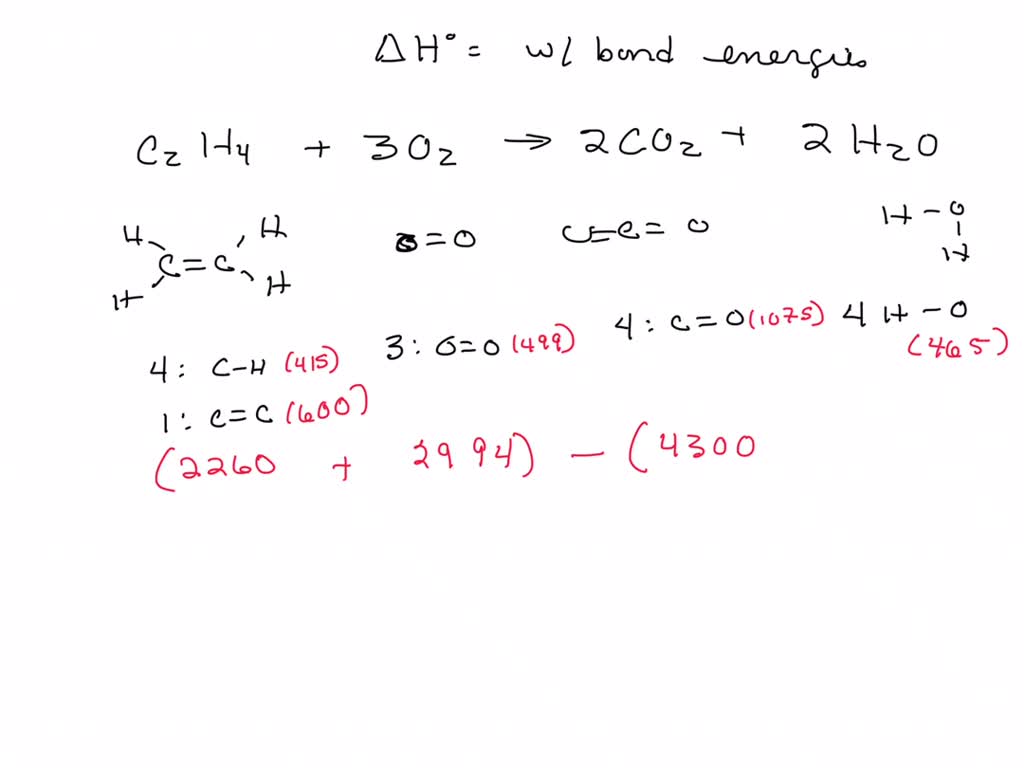 ΔH° = w/ bond energies
C₂H₄ + 3O₂ → 2CO₂ + 2H₂O
H H
C=C
H H
O=O
O=C=O
H-O
H
4: C-H (415)
1: C=C (600)
3: O=O (499)
4: C=O (1075)
4 H-O (465)
(2260 + 2994) - (4300